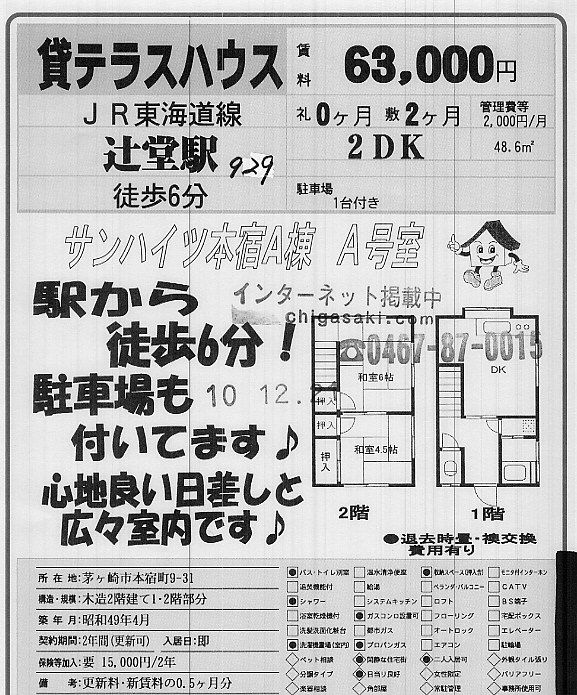 貸テラスハウス
賃料 63,000円
JR東海道線
礼 0ヶ月 敷 2ヶ月 管理費等 2,000円/月
辻堂駅 929
2DK 48.6㎡
徒歩6分
駐車場 1台付き
サンハイツ本宿A棟 A号室
駅から
徒歩6分!
インターネット掲載中
chigasaki.com
☎0467-87-0015
駐車場も
10 12.
付いてます♪
心地良い日差しと
広々室内です♪
和室6帖
押入
押入
押入
和室4.5帖
DK
2階
1階
●退去時畳・襖交換
費用有り
所在地:茅ヶ崎市本宿町9-31
構造・規模:木造2階建て1・2階部分
築年月:昭和49年4月
契約期間:2年間(更新可) 入居日:即
保険等加入:要 15,000円/2年
備考:更新料・新賃料の0.5ヶ月分
バス・トイレ別室 温水洗浄便座 収納スペース(押入含) モニタ付インターホン
追焚機能付 給湯 ベランダ・バルコニー CATV
シャワー システムキッチン ロフト BS端子
浴室乾燥機付 ガスコンロ設置可 フローリング 宅配ボックス
洗髪洗面化粧台 都市ガス オートロック エレベーター
洗濯機置場(室内) プロパンガス エアコン 駐輪場
ペット相談 閑静な住宅街 二人入居可 外観タイル張り
分譲タイプ 日当り良好 女性限定 バリアフリー
楽器相談 角部屋 常駐管理 事務所使用可